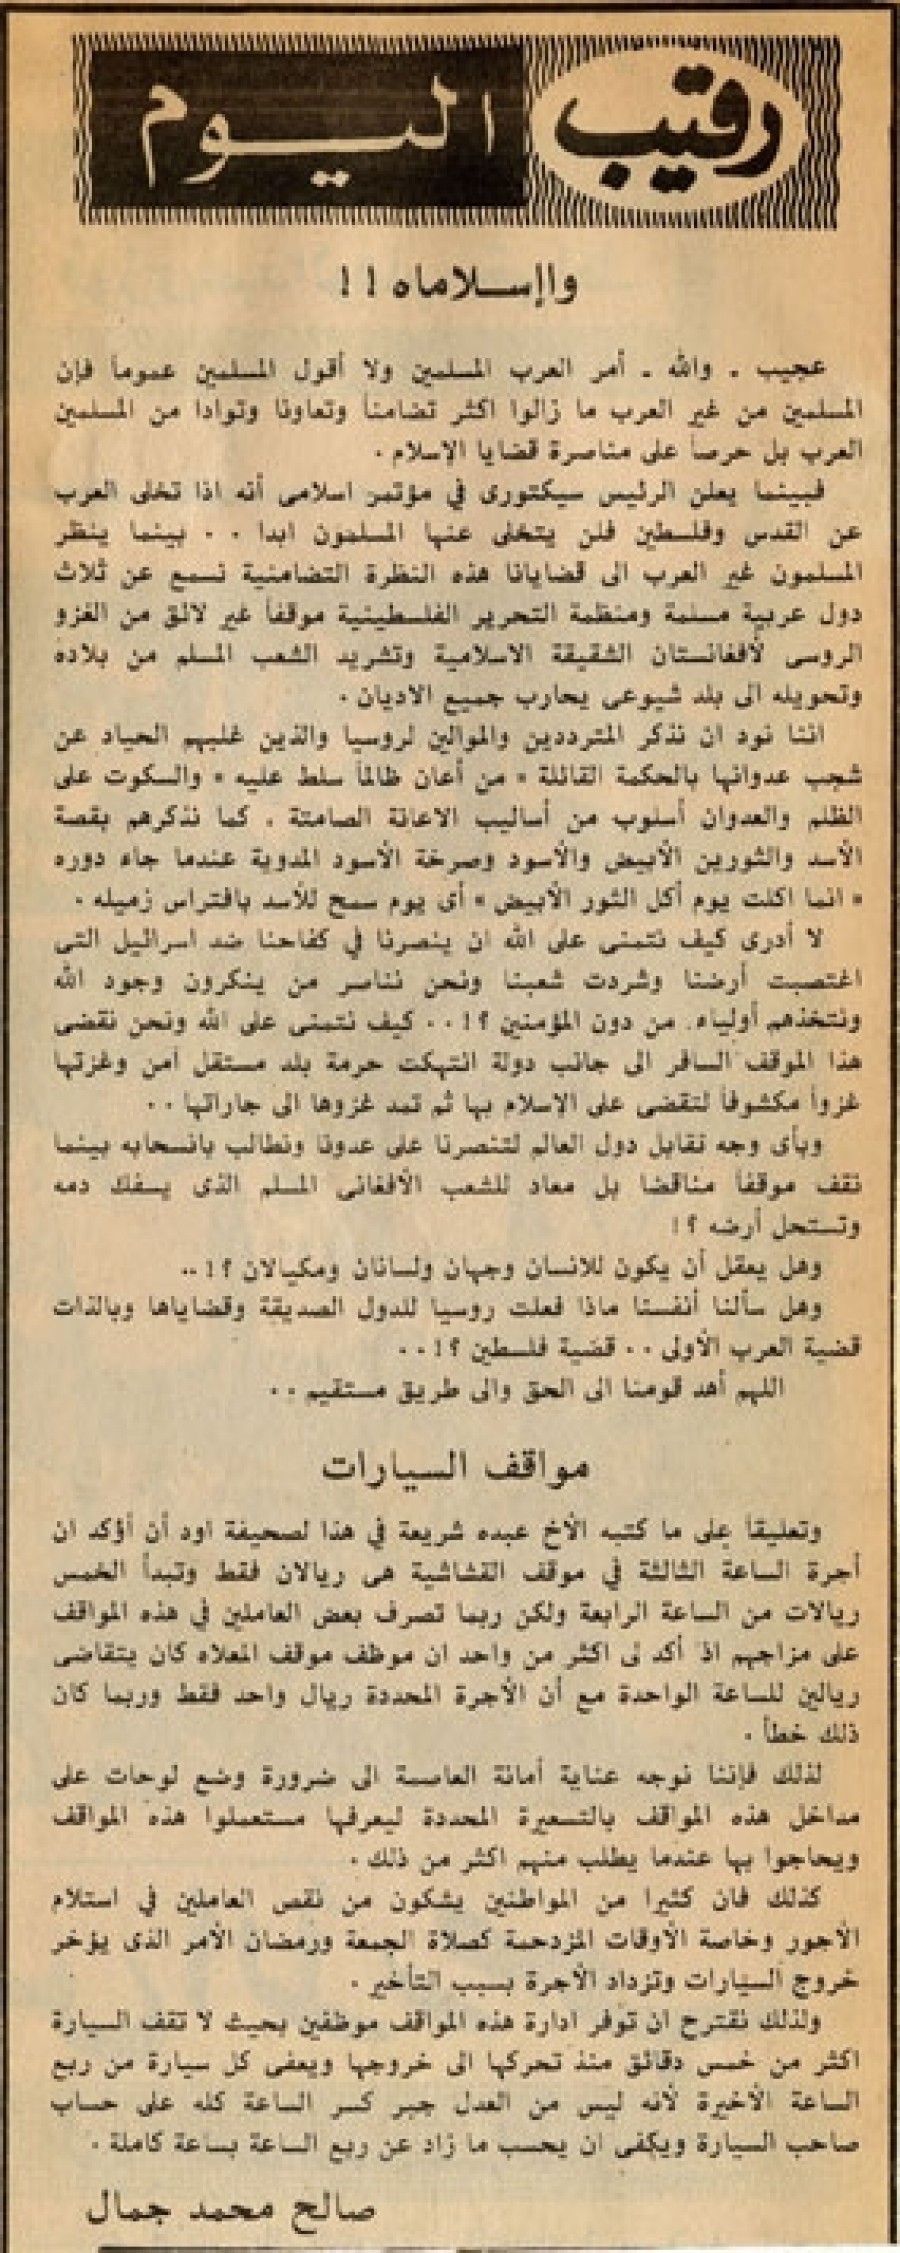 رقيب اليوم
واإسلاماه !!
عجيب . والله . أمر العرب المسلمين ولا أقول المسلمين عموماً فإن
المسلمين من غير العرب ما زالوا اكثر تضامناً وتعاونا وتوادا من المسلمين
العرب بل حرصاً على مناصرة قضايا الإسلام .
فبينما يعلن الرئيس سيكتورى في مؤتمر اسلامى أنه اذا تخلى العرب
عن القدس وفلسطين فلن يتخلى عنها المسلمون ابدا . . بينما ينظر
المسلمون غير العرب الى قضايانا هذه النظرة التضامنية نسمع عن ثلاث
دول عربية مسلمة ومنظمة التحرير الفلسطينية موقفاً غير لائق من الغزو
الروسى لأفغانستان الشقيقة الاسلامية وتشريد الشعب المسلم من بلاده
وتحويله الى بلد شيوعى يحارب جميع الاديان .
اننا نود ان نذكر المترددين والموالين لروسيا والذين غلبهم الحياد عن
شجب عدوانها بالحكمة القائلة « من أعان ظالماً سلط عليه » والسكوت على
الظلم والعدوان أسلوب من أساليب الاعانة الصامتة . كما نذكرهم بقصة
الأسد والثورين الأبيض والأسود وصرخة الأسود المدوية عندما جاء دوره
« انما اكلت يوم أكل الثور الأبيض » أى يوم سمح للأسد بافتراس زميله .
لا أدرى كيف نتمنى على الله ان ينصرنا في كفاحنا ضد اسرائيل التى
اغتصبت أرضنا وشردت شعبنا ونحن نناصر من ينكرون وجود الله
ونتخذهم أولياء. من دون المؤمنين ؟! . . كيف نتمنى على الله ونحن نقضى
هذا الموقف السافر الى جانب دولة انتهكت حرمة بلد مستقل آمن وغزتها
غزواً مكشوفاً لتقضى على الإسلام بها ثم تمد غزوها الى جاراتها . .
وبأى وجه نقابل دول العالم لتنصرنا على عدونا ونطالب بانسحابه بينما
نقف موقفاً مناقضا بل معاد للشعب الأفغانى المسلم الذى يسفك دمه
وتستحل أرضه ؟!
وهل يعقل أن يكون للانسان وجهان ولسانان ومكيالان ؟! ..
وهل سألنا أنفسنا ماذا فعلت روسيا للدول الصديقة وقضاياها وبالذات
قضية العرب الأولى . . قضية فلسطين ؟! . .
اللهم أهد قومنا الى الحق والى طريق مستقيم . .
مواقف السيارات
وتعليقاً على ما كتبه الأخ عبده شريعة في هذا لصحيفة اود أن أؤكد ان
أجرة الساعة الثالثة في موقف القشاشية هى ريالان فقط وتبدأ الخمس
ريالات من الساعة الرابعة ولكن ربما تصرف بعض العاملين في هذه المواقف
على مزاجهم اذ أكد لى اكثر من واحد ان موظف موقف المعلاه كان يتقاضى
ريالين للساعة الواحدة مع أن الأجرة المحددة ريال واحد فقط وربما كان
ذلك خطأ .
لذلك فإننا نوجه عناية أمانة العاصمة الى ضرورة وضع لوحات على
مداخل هذه المواقف بالتسعيرة المحددة ليعرفها مستعملوا هذه المواقف
ويحاجوا بها عندما يطلب منهم اكثر من ذلك .
كذلك فان كثيرا من المواطنين يشكون من نقص العاملين في استلام
الأجور وخاصة الأوقات المزدحمة كصلاة الجمعة ورمضان الأمر الذى يؤخر
خروج السيارات وتزداد الأجرة بسبب التأخير .
ولذلك نقترح ان توفر ادارة هذه المواقف موظفين بحيث لا تقف السيارة
اكثر من خمس دقائق منذ تحركها الى خروجها ويعفى كل سيارة من ربع
الساعة الأخيرة لأنه ليس من العدل جبر كسر الساعة كله على حساب
صاحب السيارة ويكفى ان يحسب ما زاد عن ربع الساعة بساعة كاملة .
صالح محمد جمال